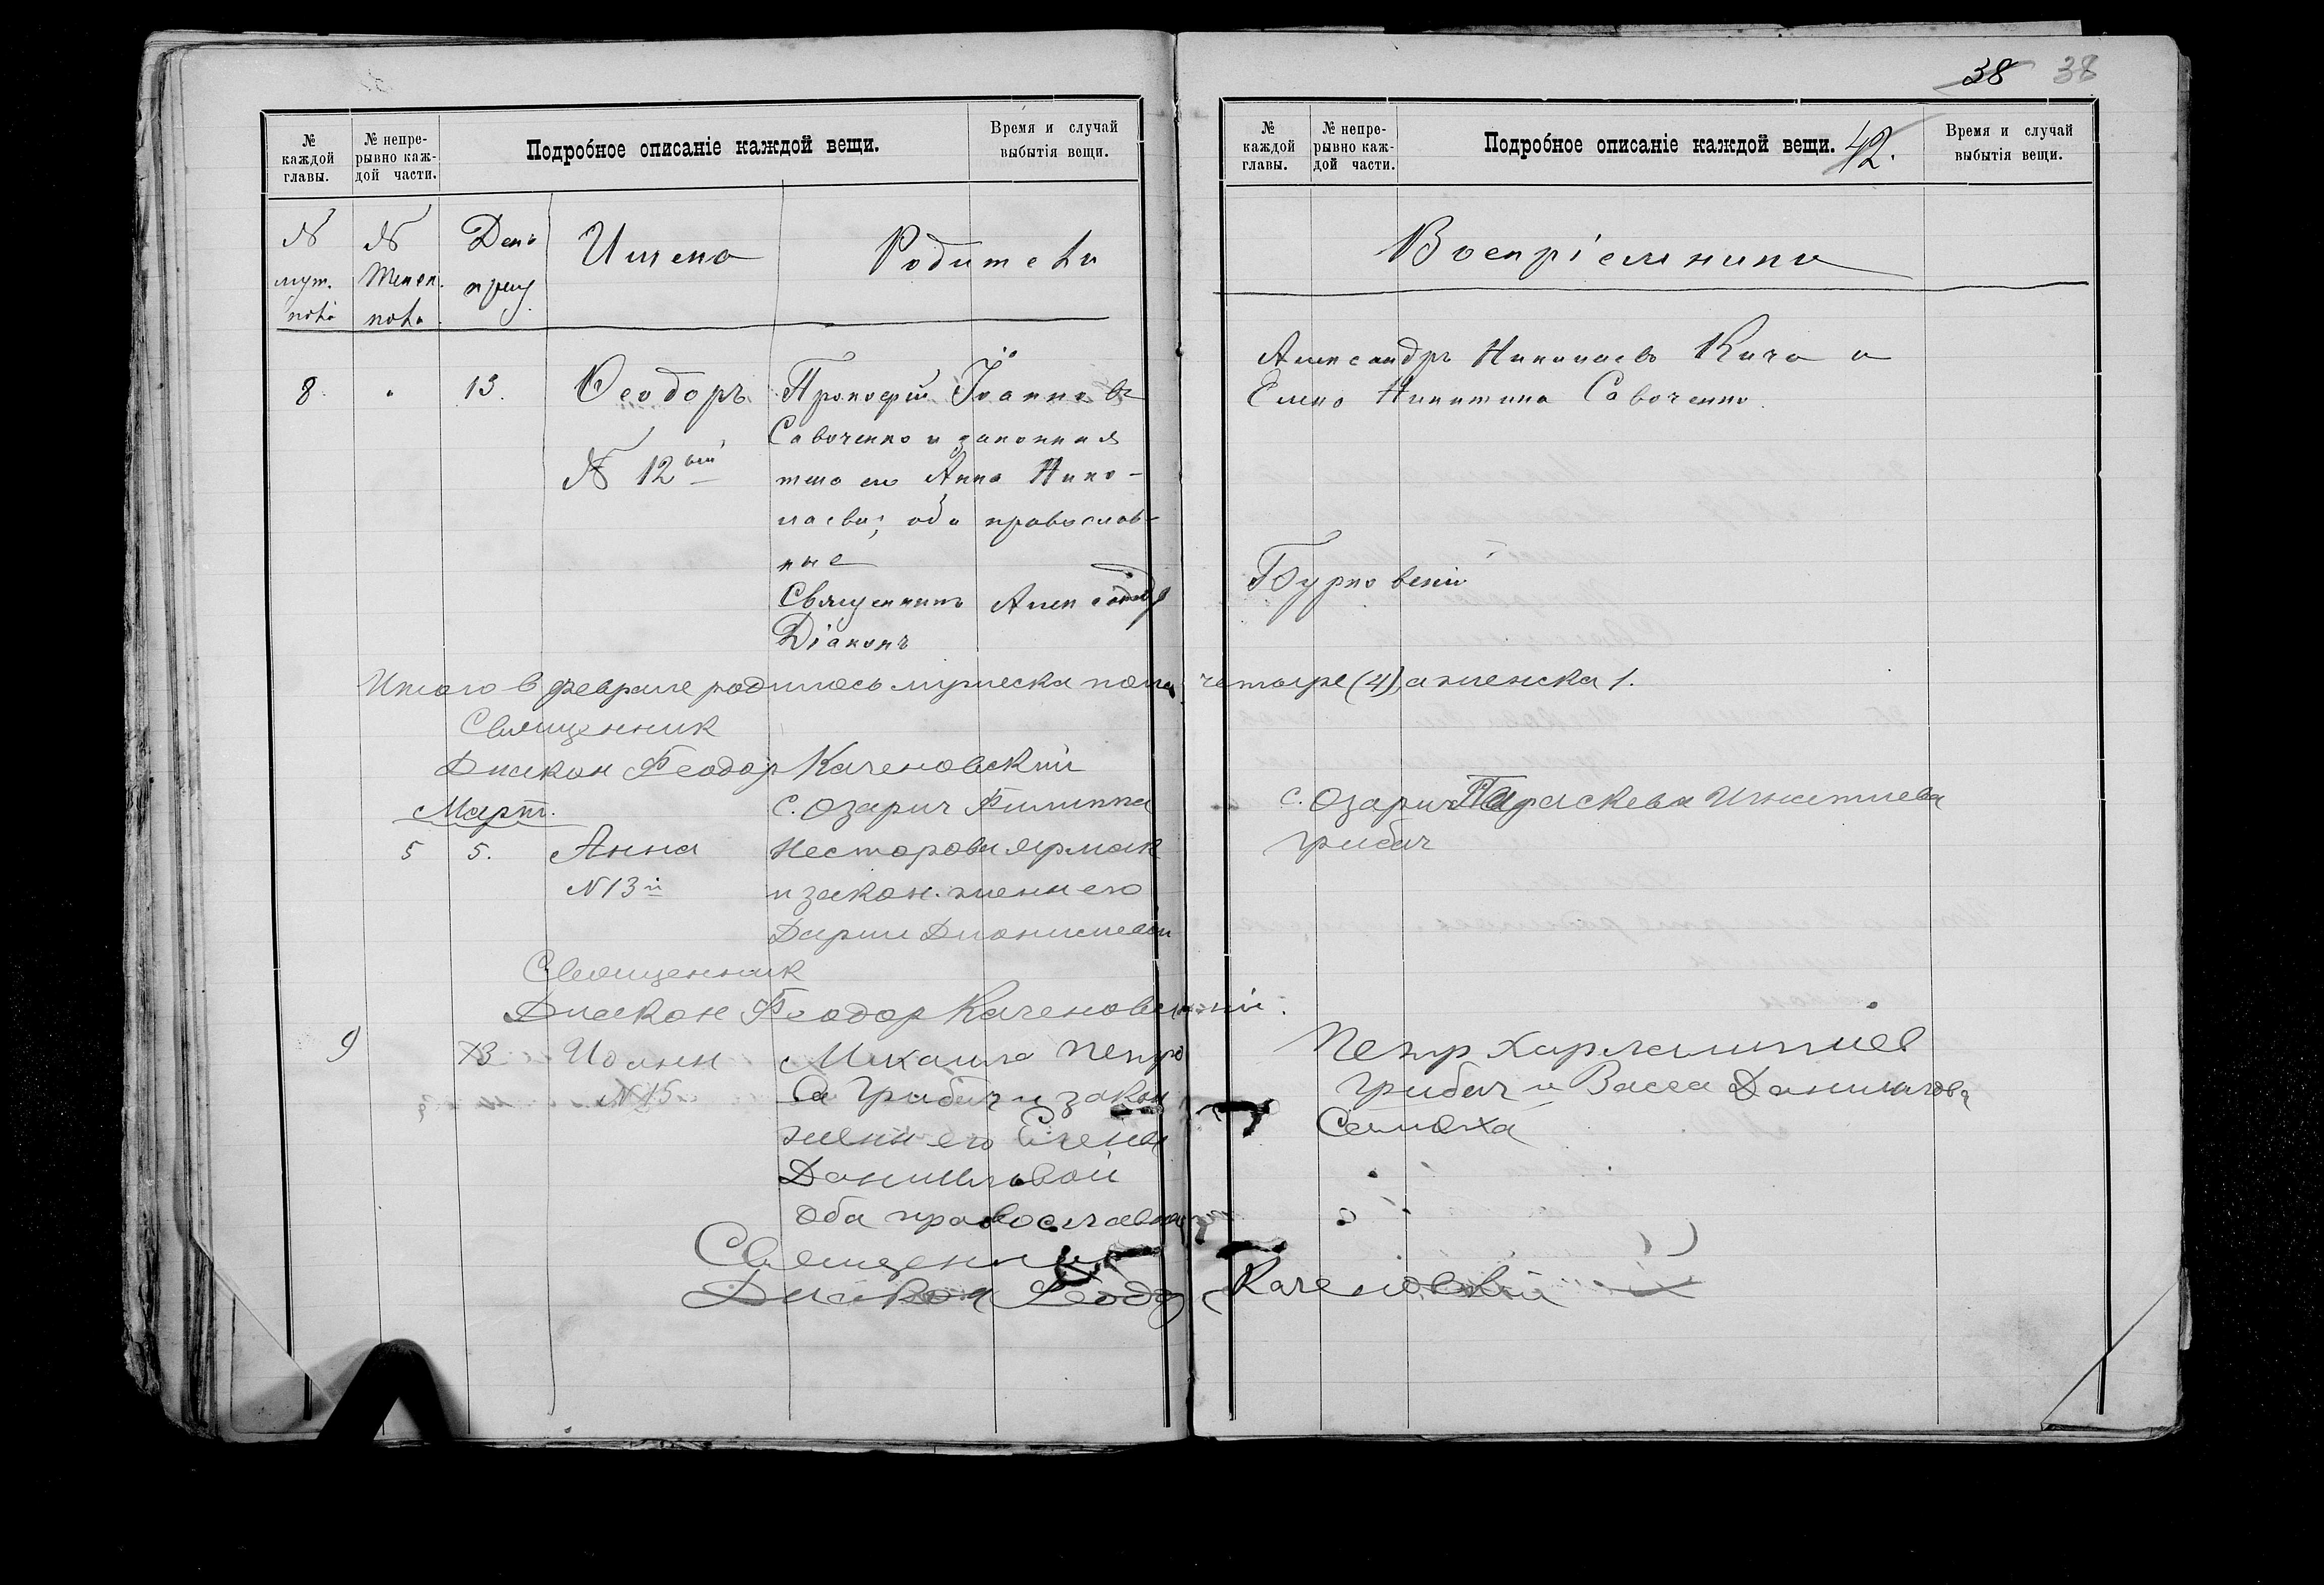 № каждой главы.
№ непре-
рывно каж-
дой части.
Подробное описаніе каждой вещи.
Время и случай
выбытія вещи.
№
муж.
пола
№
женск.
пола
День
крещ.
Имена
Родители
8. " 13. Ѳеодоръ
№ 12ый
Прокофій Іоанновъ
Савоченко и законная
жена его Анна Нико-
лаева; оба православ-
ные
Священникъ Александръ
Діаконъ
Итого в феврале родилось мужеска пола
Священник
Диакон Феодор Каченовский
Март.
5 5. Анна
N 13й
С. Озарич Филиппа
Несторова Ярмак
и закон. жены его
Дарии Дионисиевой
Священник
Диакон Феодор Каченовский.
9 Иоанн
N 15
Михаила Петро
ва Грибач и закон
жены его Елены
Данииловой
Оба православные
Священник
Диакон Феодор
38 38
№ каждой главы.
№ непре-
рывно каж-
дой части.
Подробное описаніе каждой вещи. 42.
Время и случай
выбытія вещи.
Воспріемники
Александръ Николаевъ и
Елена Никитина Савоченко.
Бурковскій
четыре (4), а женска 1.
с. Озарич Параскева Игнатиева
Грибач
Петр Харлампиев
Грибач и Васса Даниилова
Каченовский